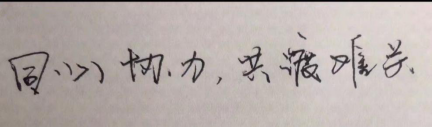 同心协力，共渡难关.